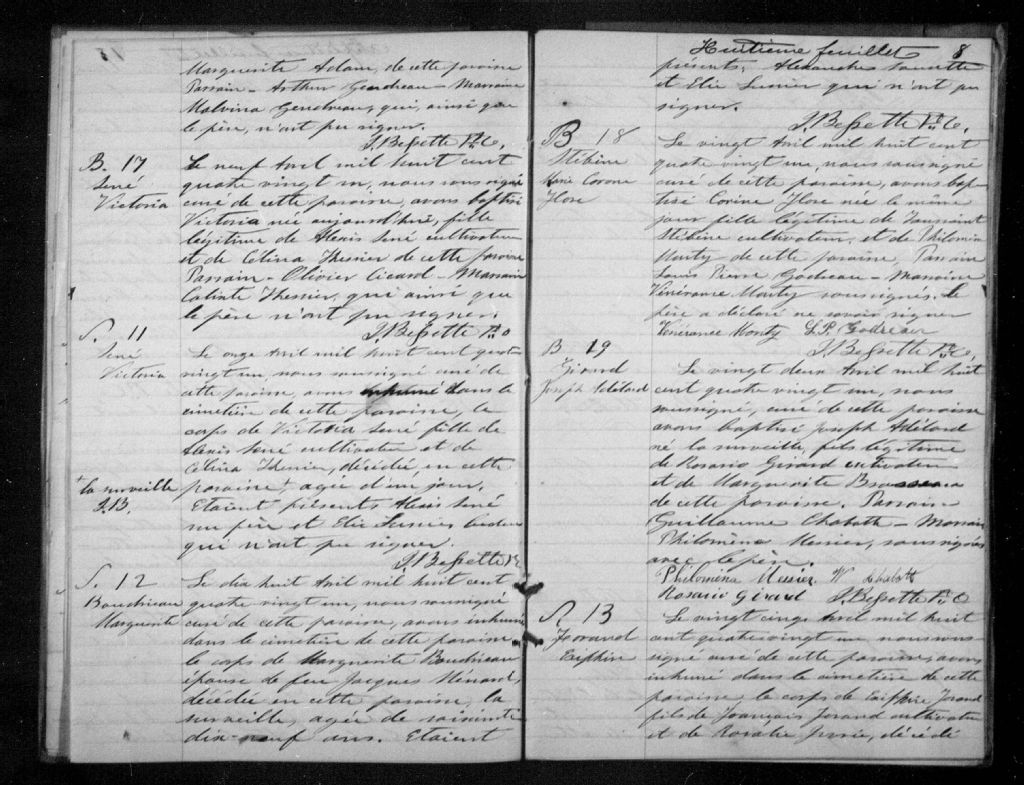 Marguerite Adam, de cette paroisse
Parrain - Arthur Gendreau - Marraine
Malvina Gendreau, qui, ainsi que
le père, n'ont pu signer.
J. Bessette Ptre C.
B. 17
Sené
Victoria
Le neuf Avril mil huit cent
quatre vingt un, nous soussigné
curé de cette paroisse, avons baptisé
Victoria née aujourd'hui, fille
légitime de Alexis Sené cultivateur
et de Célina Thessier de cette paroisse
Parrain - Olivier Cicard - Marraine
Thessier, qui ainsi que
le père n'ont pu signer.
J. Bessette Ptre C
S. 11
Sené
Victoria
Le onze Avril mil huit cent quatre
vingt un, nous soussigné curé de
cette paroisse, avons inhumé dans le
cimetière de cette paroisse, le
corps de Victoria Sené fille de
Alexis Sené cultivateur et de
Célina Thessier, décédée en cette
+ la surveille
J.B.
paroisse + agée d'un jour.
Etaient présents Alexis Sené
son père et Elie bedeau
qui n'ont pu signer.
J. Bessette Ptre
S. 12
Boudrieau
Marguerite
Le dix huit Avril mil huit cent
quatre vingt un, nous soussigné
curé de cette paroisse, avons inhumé
dans le cimetière de cette paroisse
le corps de Marguerite Boudrieau
épouse de feu Jacques Menard,
décédée en cette paroisse, la
surveille, agée de soixante
dix-neuf ans. Etaient
Huitième feuillet 8
présents, Alexandre
et Elie qui n'ont pu
signer.
J. Bessette Ptre C.
B 18
Stébine
Marie Corone
Flore
Le vingt Avril mil huit cent
quatre vingt un, nous soussigné
curé de cette paroisse, avons bap-
tisé Corine Flore née le même
jour fille légitime de Toussaint
Stébine cultivateur, et de Philomène
Monty de cette paroisse, Parrain
Louis Pierre Godreau - Marraine
Vénérance Monty soussignés. Le
père a déclaré ne savoir signer
Vénérance Monty L. P. Godreau
J. Bessette Ptre C.
B 19
Girard
Joseph Adélard
Le vingt deux Avril mil huit
cent quatre vingt un, nous
soussigné, curé de cette paroisse
avons baptisé Joseph Adélard
né la surveille, fils légitime
de Rosario Girard cultivateur
et de Marguerite Brosseau
de cette paroisse. Parrain
Guillaume Chabott - Marraine
Philomène Messier, soussignés
avec le père.
Philomèna Messier W Chabott
Rosario Girard J. Bessette Ptre C
S. 13
Le vingt cinq Avril mil huit
cent quatre vingt un nous sous-
signé curé de cette paroisse, avons
inhumé dans le cimetière de cette
paroisse le corps de
fils de François cultivateur
et de Rosalie décédé